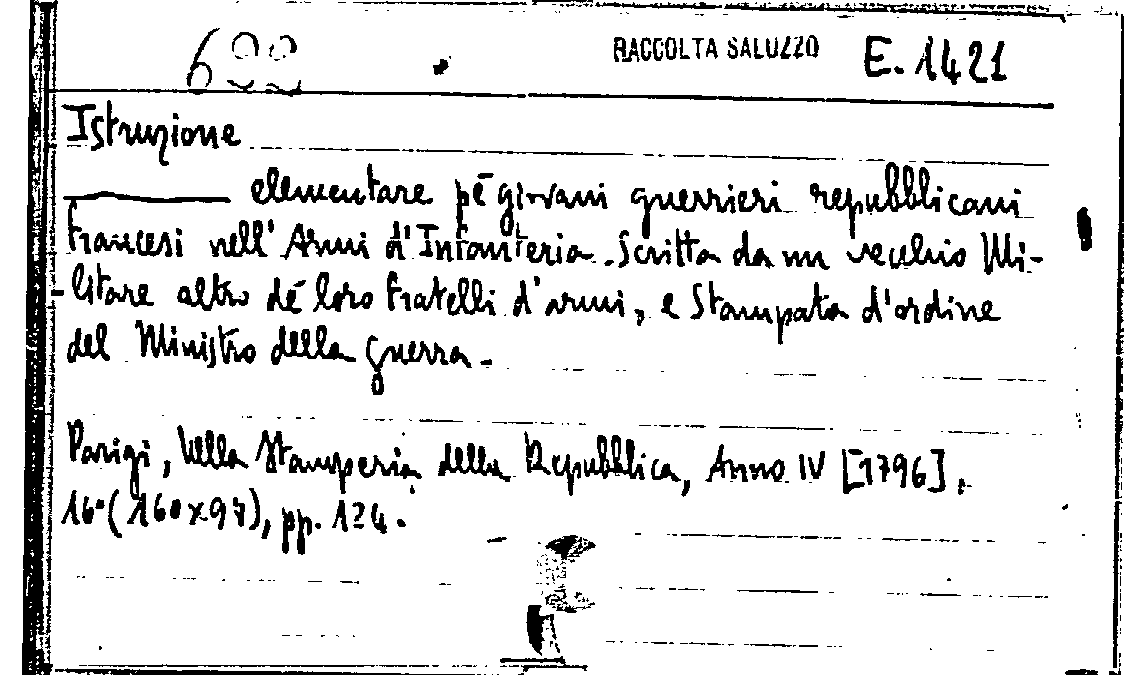 622 RACCOLTA SALUZZO E. 1421
Istruzione
——— elementare pé giovani guerrieri repubblicani
francesi nell'Armi d'Infanteria. Scritta da un vecchio Mi-
litare altro dé loro fratelli d'armi, e Stampata d'ordine
del Ministro della guerra.
Parigi, Nella Stamperia della Repubblica, Anno IV [1796],
16° (160x97), pp. 124.